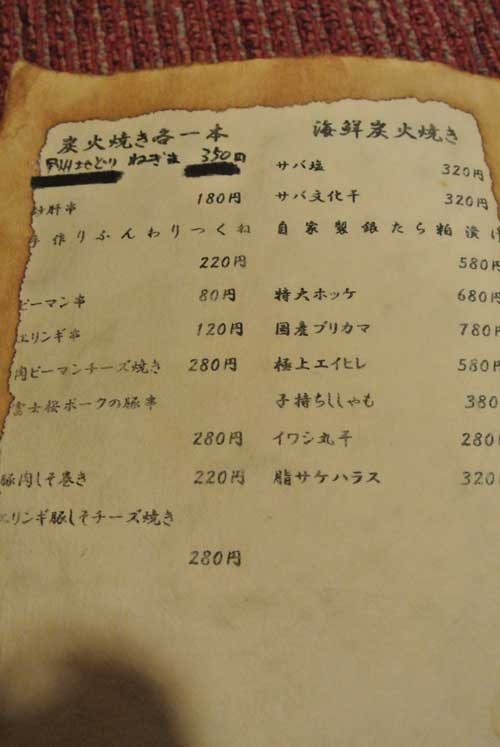 炭火焼き各一本
地どり ねぎま 350円
肝串 180円
手作りふんわりつくね
220円
ピーマン串 80円
エリンギ串 120円
肉ピーマンチーズ焼き 280円
富士桜ポークの豚串
280円
豚肉しそ巻き 220円
エリンギ豚しそチーズ焼き
280円
海鮮炭火焼き
サバ塩 320円
サバ文化干 320円
自家製銀たら粕漬け
580円
特大ホッケ 680円
国産ブリカマ 780円
極上エイヒレ 580円
子持ちししゃも 380
イワシ丸干 280
脂サケハラス 320